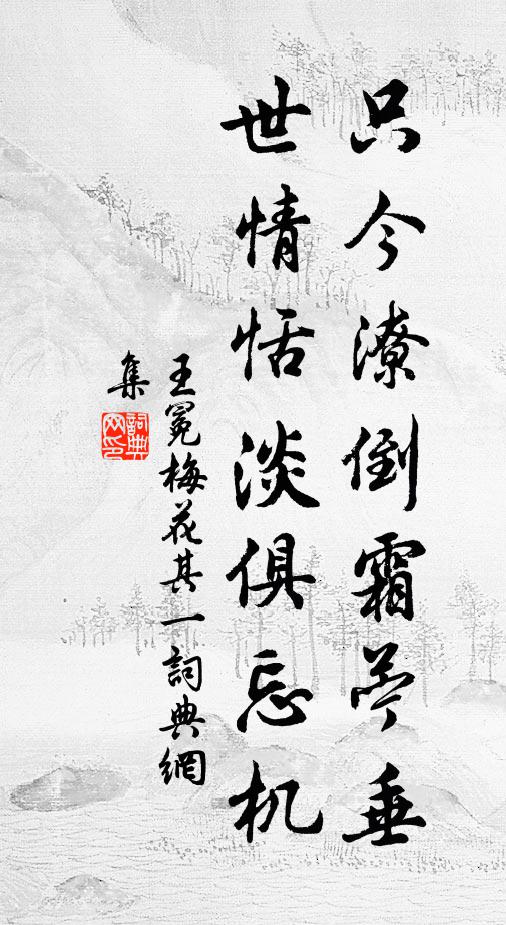 只今潦倒霜苓垂
世情恬淡俱忘机
王冕梅花其一詞典網
集
詞典
网印